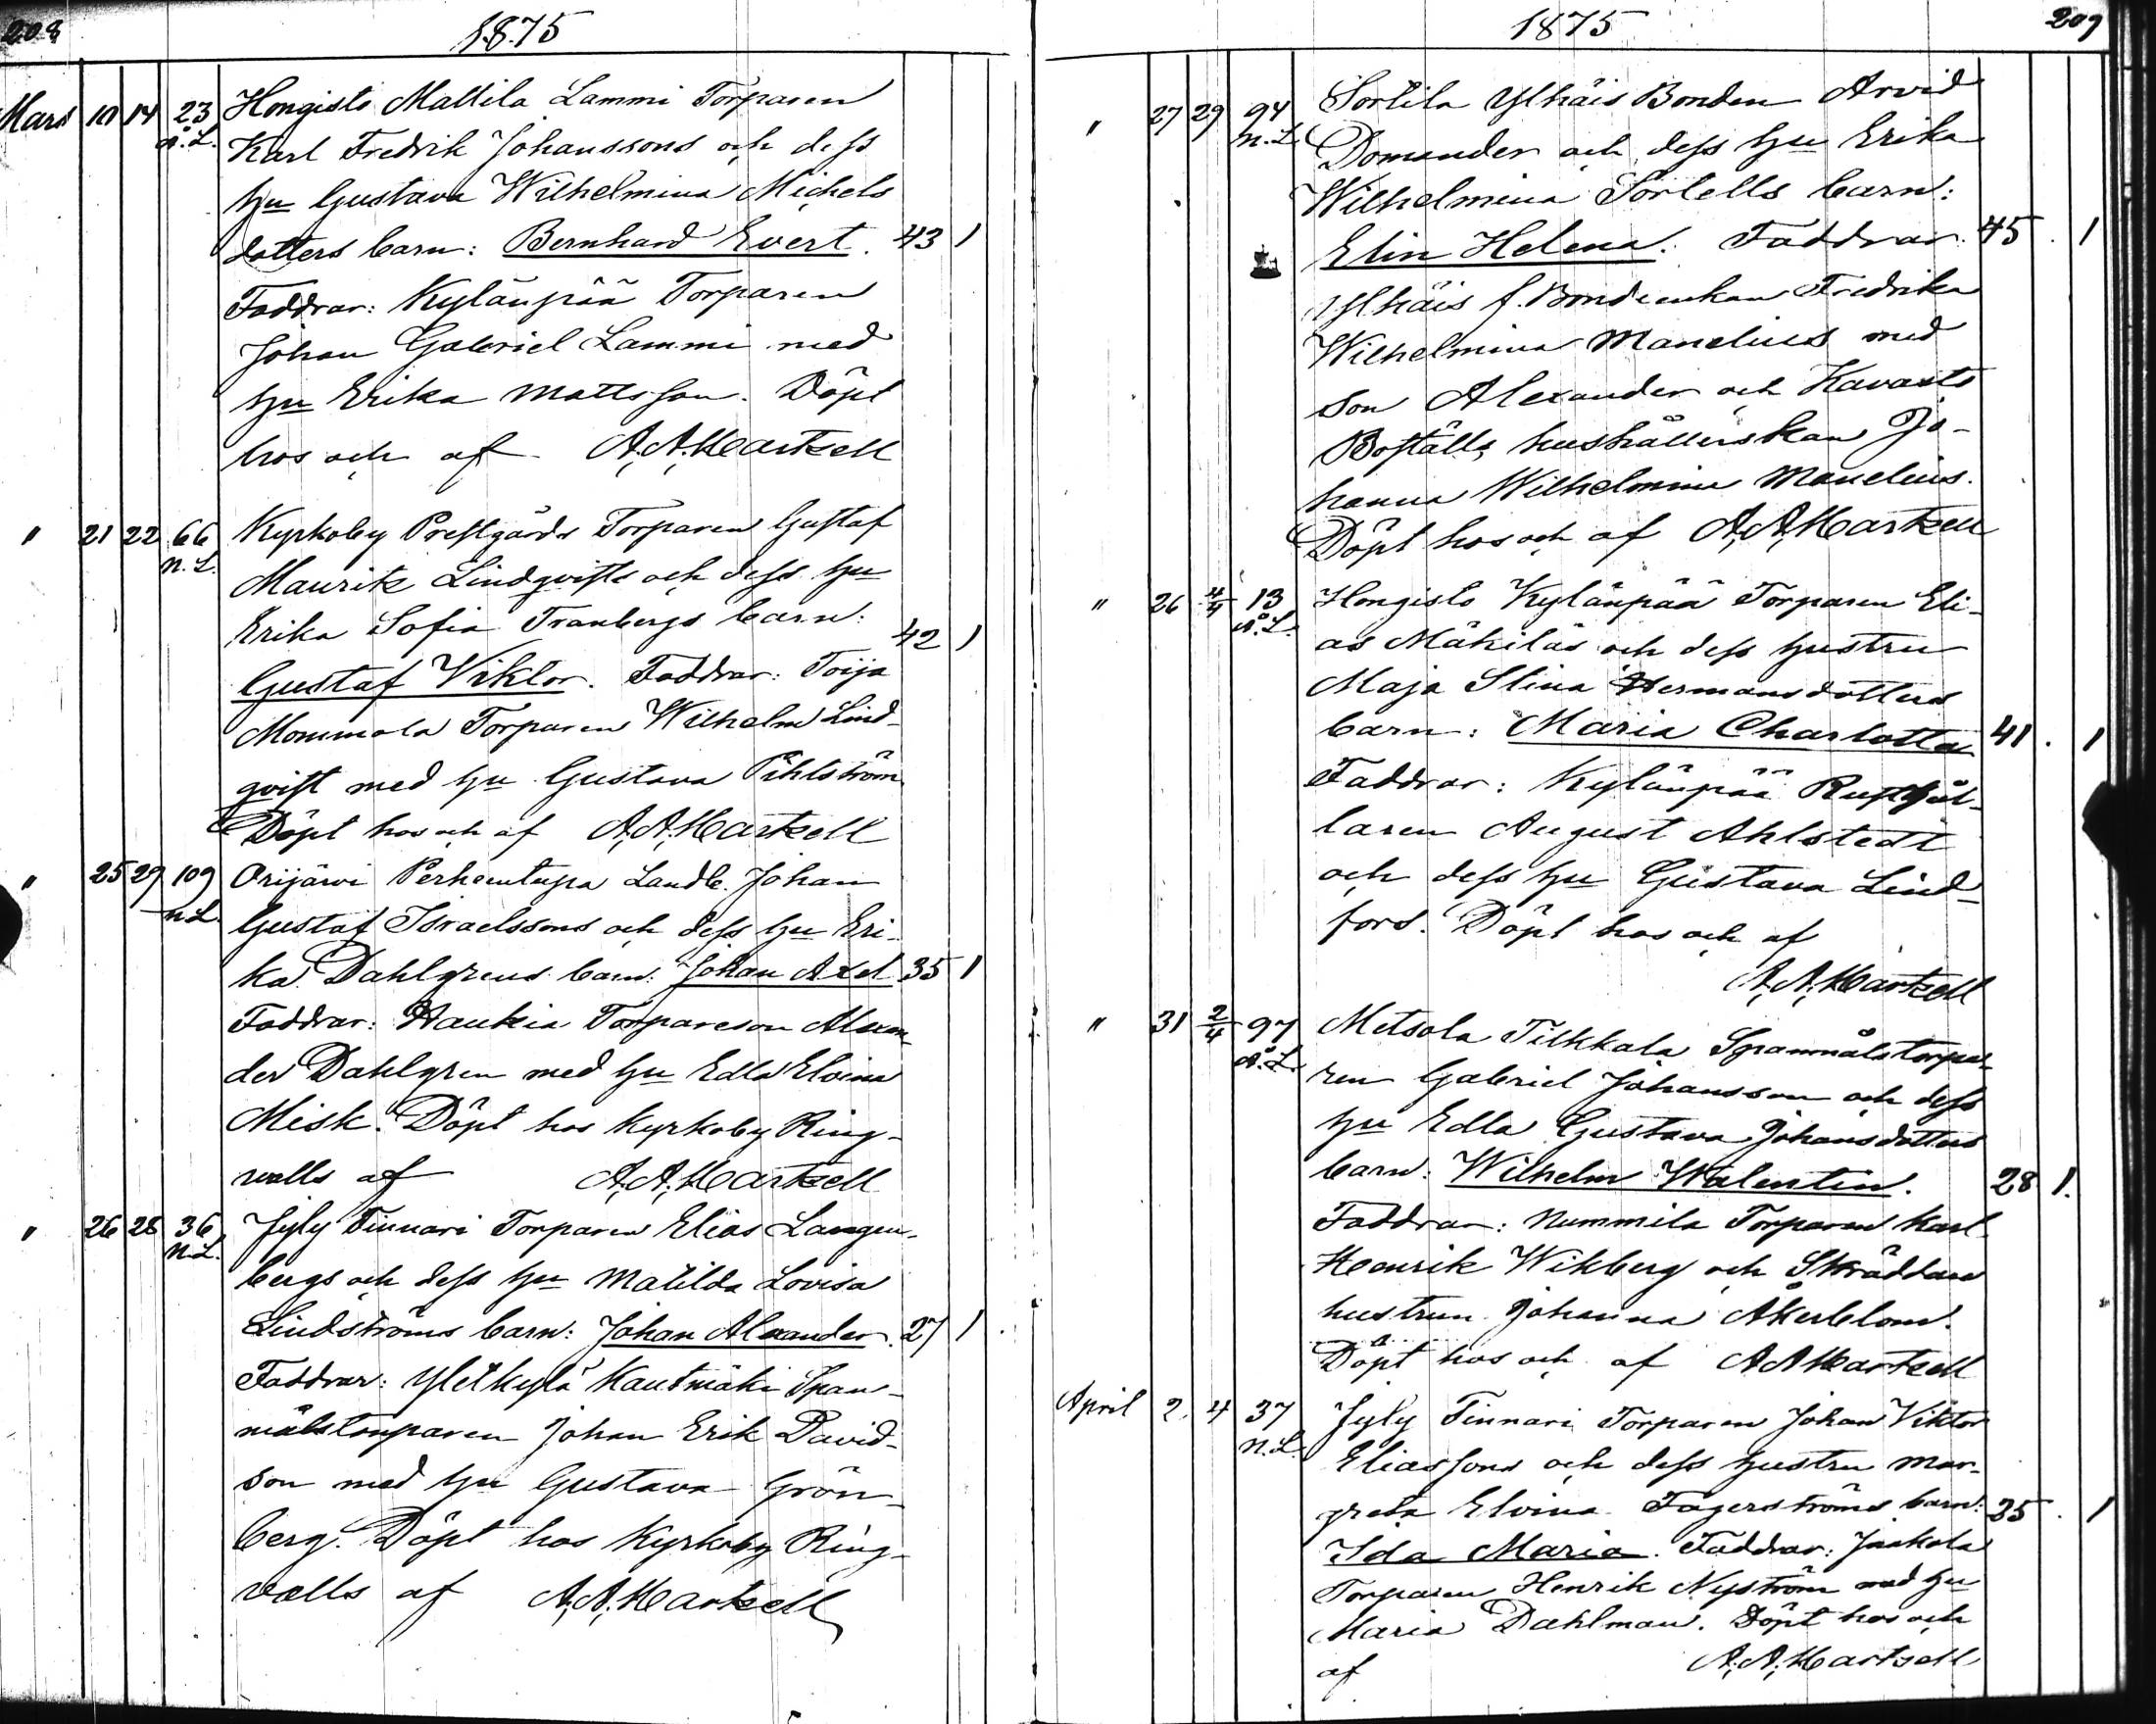 208
1875
Mars 10 14 23 Hongisto Mattila Lammi Torparen
Å.L. Karl Fredrik Johanssons och dess
hu Gustava Wilhelmina Michels
dotters barn: Bernhard Evert. 43 1
Faddrar: Kylänpää Torparen
Johan Gabriel Lammi med
hu Erika Mattsson. Döpt
hos och af A.A.Hartzell
" 21 22 66 Kyrkoby Prestgårds Torparen Gustaf
N.L. Mauritz Lindqvists och dess hu
Erika Sofia Tranbergs barn: 42 1
Gustaf Viktor. Faddrar: Toija
Mommola Torparen Wilhelm Lind-
qvist med hu Gustava Pihlström
Döpt hos och af A.A.Hartzell
" 25 29 109 Orijärvi Perhentupa Landb. Johan
N.L. Gustaf Israelssons och dess hu Eri-
ka Dahlgrens barn: Johan Axel 35 1
Faddrar: Haukia Torpareson Alexan
der Dahlgren med hu Edla Elvina
Misk. Döpt hos Kyrkoby Ring-
walls af A.A.Hartzell
" 26 28 36 Jyly Tinnari Torparen Elias Langen-
N.L. bergs och dess hu Matilda Lovisa
Lindströms barn: Johan Alexander. 27 1
Faddrar: Yletkylä Kautmäki Span-
målstorparen Johan Erik David-
son med hu Gustava Grön-
berg. Döpt hos Kyrkoby Ring-
valls af A.A.Hartzell
1875
209
" 27 29 94 Sortila Ylhäis Bonden Arvid
N.L. Domander och dess hu Erika
Wilhelmina Sortells barn:
Elin Helena. Faddrar. 45. 1
Ylhäis f. Bondeenkan Fredrika
Wilhelmina Manelius med
son Alexander och Kavasto
Boställs hushållerskan Jo-
hanna Wilhelmina Manelius.
Döpt hos och af A.A.Hartzell
" 26 4/4 13 Hongisto Kylänpää Torparen Eli-
Å.L. as Mäkiläs och dess hustru
Maja Stina Hermansdotters
barn: Maria Charlotta 41. 1
Faddrar: Kylänpää Rusthål-
laren August Ahlstedt
och dess hu Gustava Lind-
fors. Döpt hos och af
A.A.Hartzell
" 31 2/4 97 Metsola Tilkkala Spannmålstorpa-
Å.L. ren Gabriel Johansson och dess
hu Edla Gustava Johansdotters
barn: Wilhelm Walentin. 28 1.
Faddrar: Nummila Torparen Karl
Henrik Wikberg och Skräddare
hustrun Johanna Åkerblom.
Döpt hos och af A.A.Hartzell
April 2. 4 37 Jyly Tinnari Torparen Johan Viktor
N.L. Eliassons och dess hustru Mar-
greta Elvina Fagerströms barn: 35. 1
Ida Maria. Faddrar: Jaakola
Torparen Henrik Nyström med hu
Maria Dahlman. Döpt hos och
af A.A.Hartzell